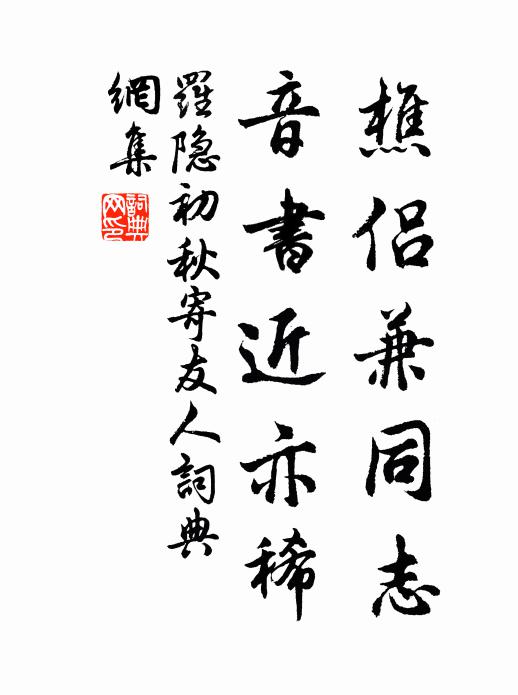 樵侶兼同志
音書近亦稀
羅隐初秋寄友人詞典
網集
詞典网印